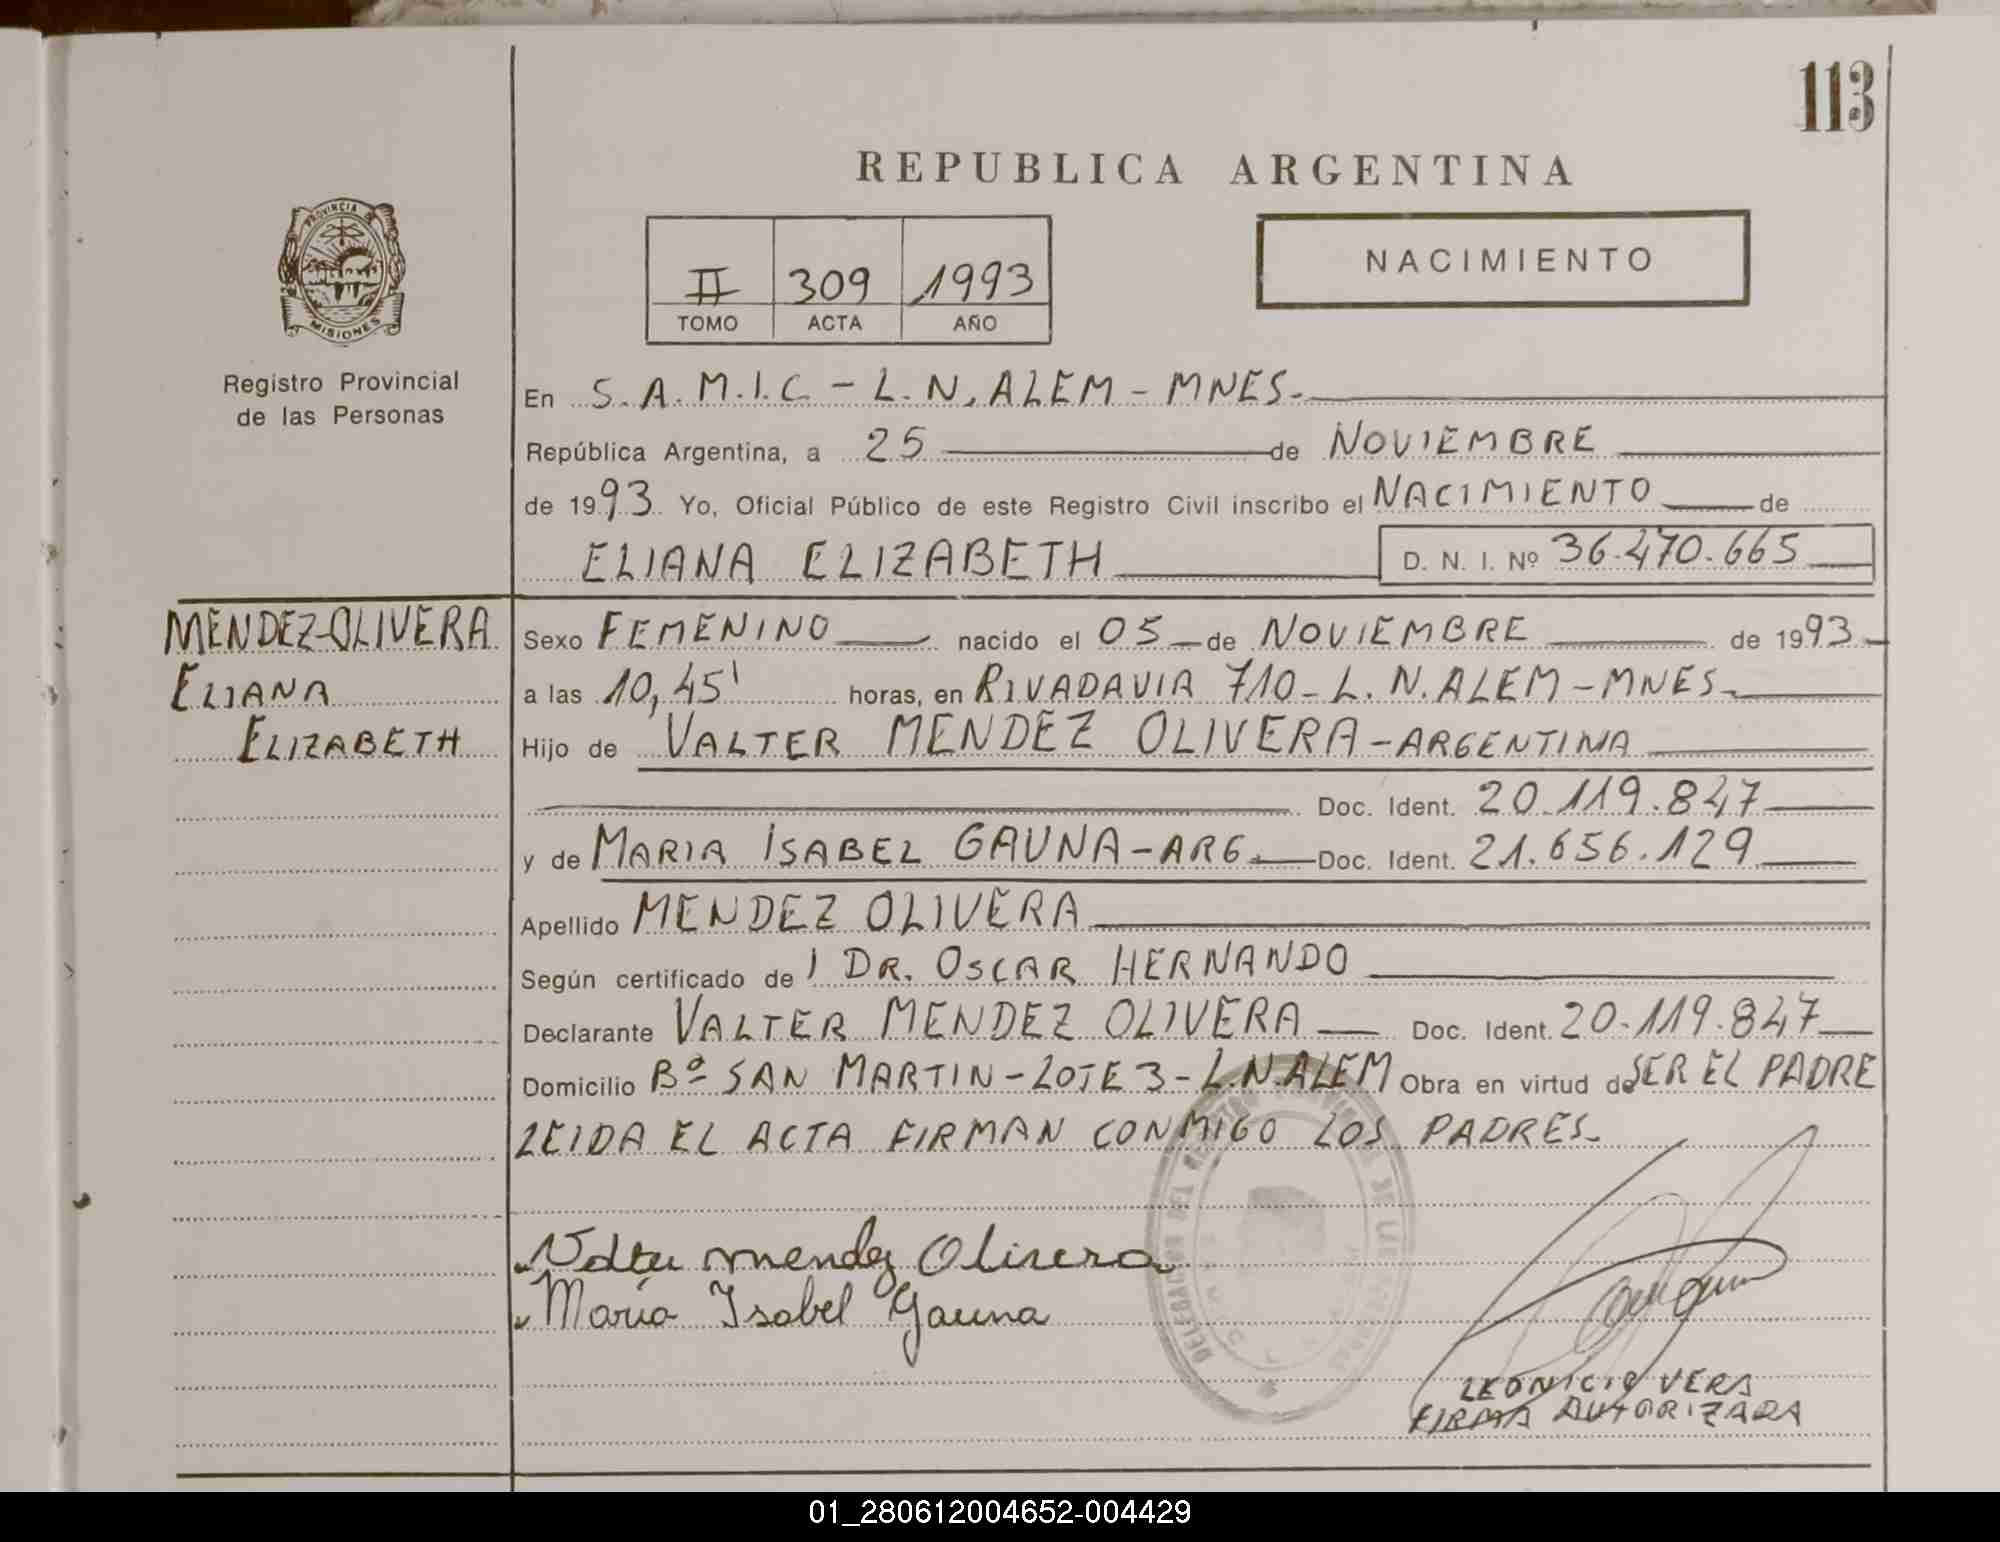 113
REPUBLICA ARGENTINA
PROVINCIA DE
MISIONES
Registro Provincial
de las Personas
II 309 1993
TOMO ACTA AÑO
NACIMIENTO
En S.A.M.I.C - L.N.ALEM - MNES.
República Argentina, a 25 de NOVIEMBRE
de 1993 Yo, Oficial Público de este Registro Civil inscribo el NACIMIENTO de
ELIANA ELIZABETH D. N. I. Nº 36.470.665
MENDEZ-OLIVERA
ELIANA
ELIZABETH
Sexo FEMENINO nacido el 05 de NOVIEMBRE de 1993
a las 10,45' horas, en RIVADAVIA 710 - L.N.ALEM - MNES.
Hijo de VALTER MENDEZ OLIVERA - ARGENTINA
Doc. Ident. 20.119.847
y de MARIA ISABEL GAUNA - ARG. Doc. Ident. 21.656.129
Apellido MENDEZ OLIVERA
Según certificado de l DR. OSCAR HERNANDO
Declarante VALTER MENDEZ OLIVERA Doc. Ident. 20.119.847
Domicilio Bº SAN MARTIN - LOTE 3 - L.N.ALEM Obra en virtud de SER EL PADRE
LEIDA EL ACTA FIRMAN CONMIGO LOS PADRES.
Valter mendez Olivera
María Isabel Gauna
DELEGACION DEL REGISTRO PROVINCIAL DE LAS PERSONAS
LEONICIO VERA
FIRMA AUTORIZADA
01_280612004652-004429